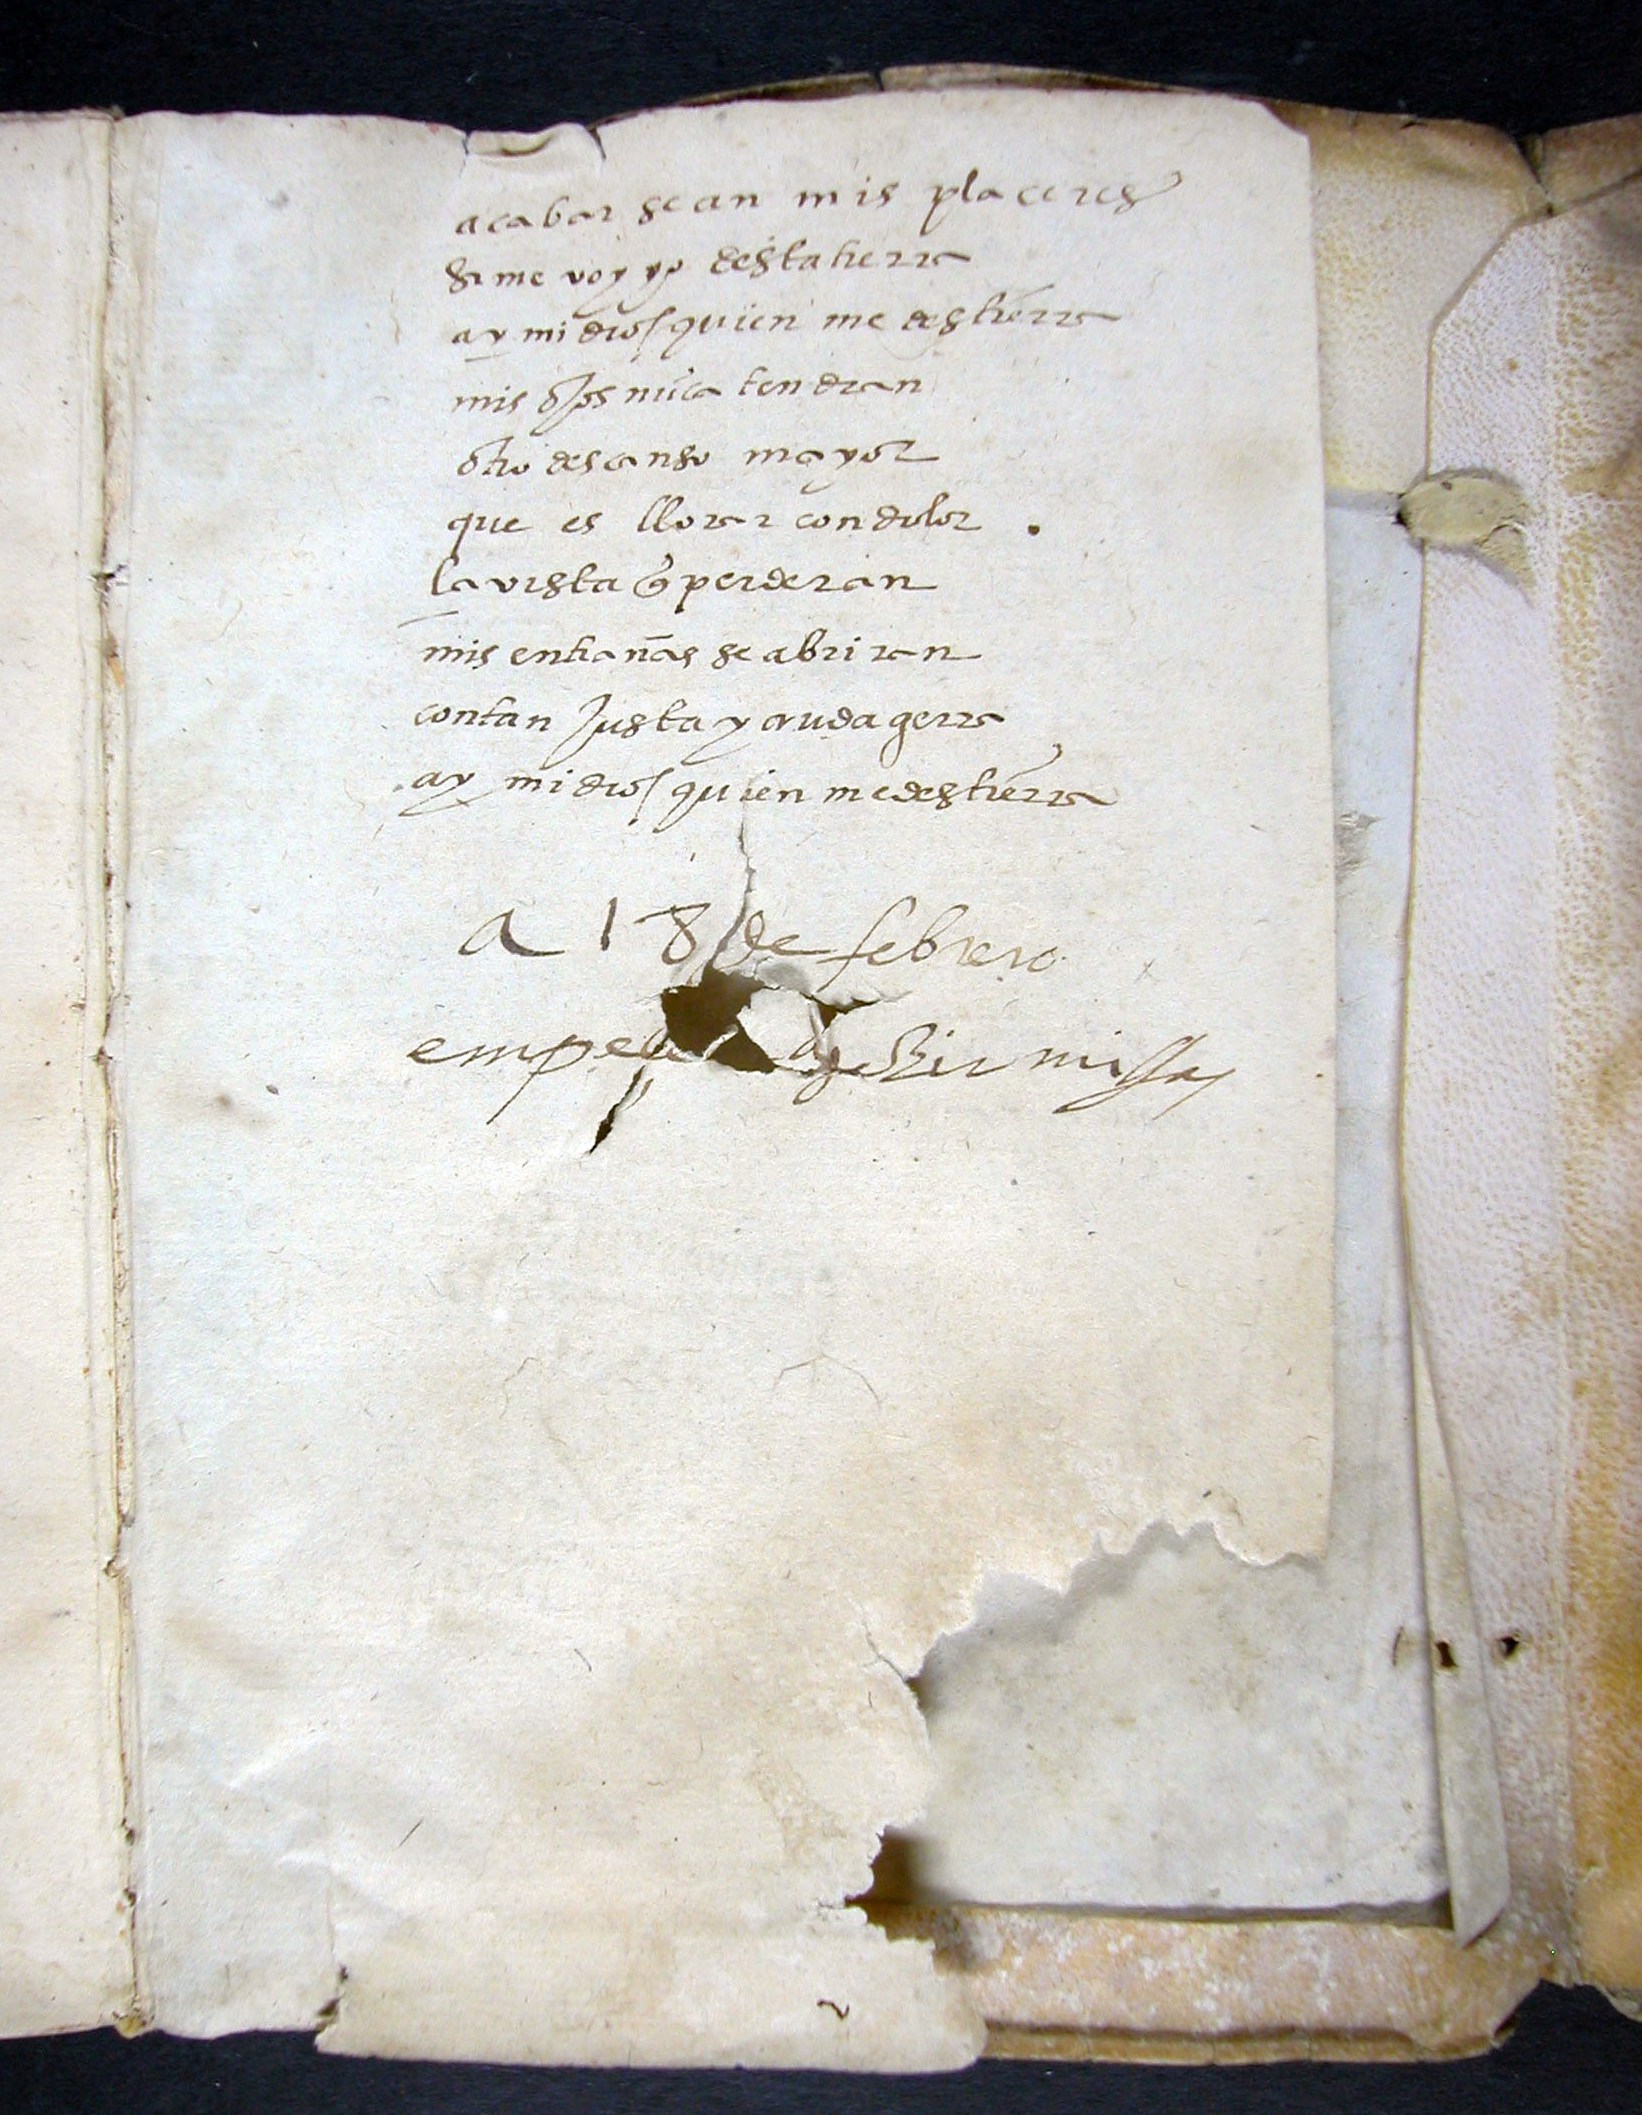 acabar sean mis placeres
si me voy yo desta tierra
ay mi dios quien me destierra
mis ojos nũca tendran
otro descanso mayor
que es llorar con dolor .
la vista q̃ perderan
mis entrañas se abriran
con tan justa y cruda gerra
ay mi dios quien me destierra
a 18 de febrero
dezir missas